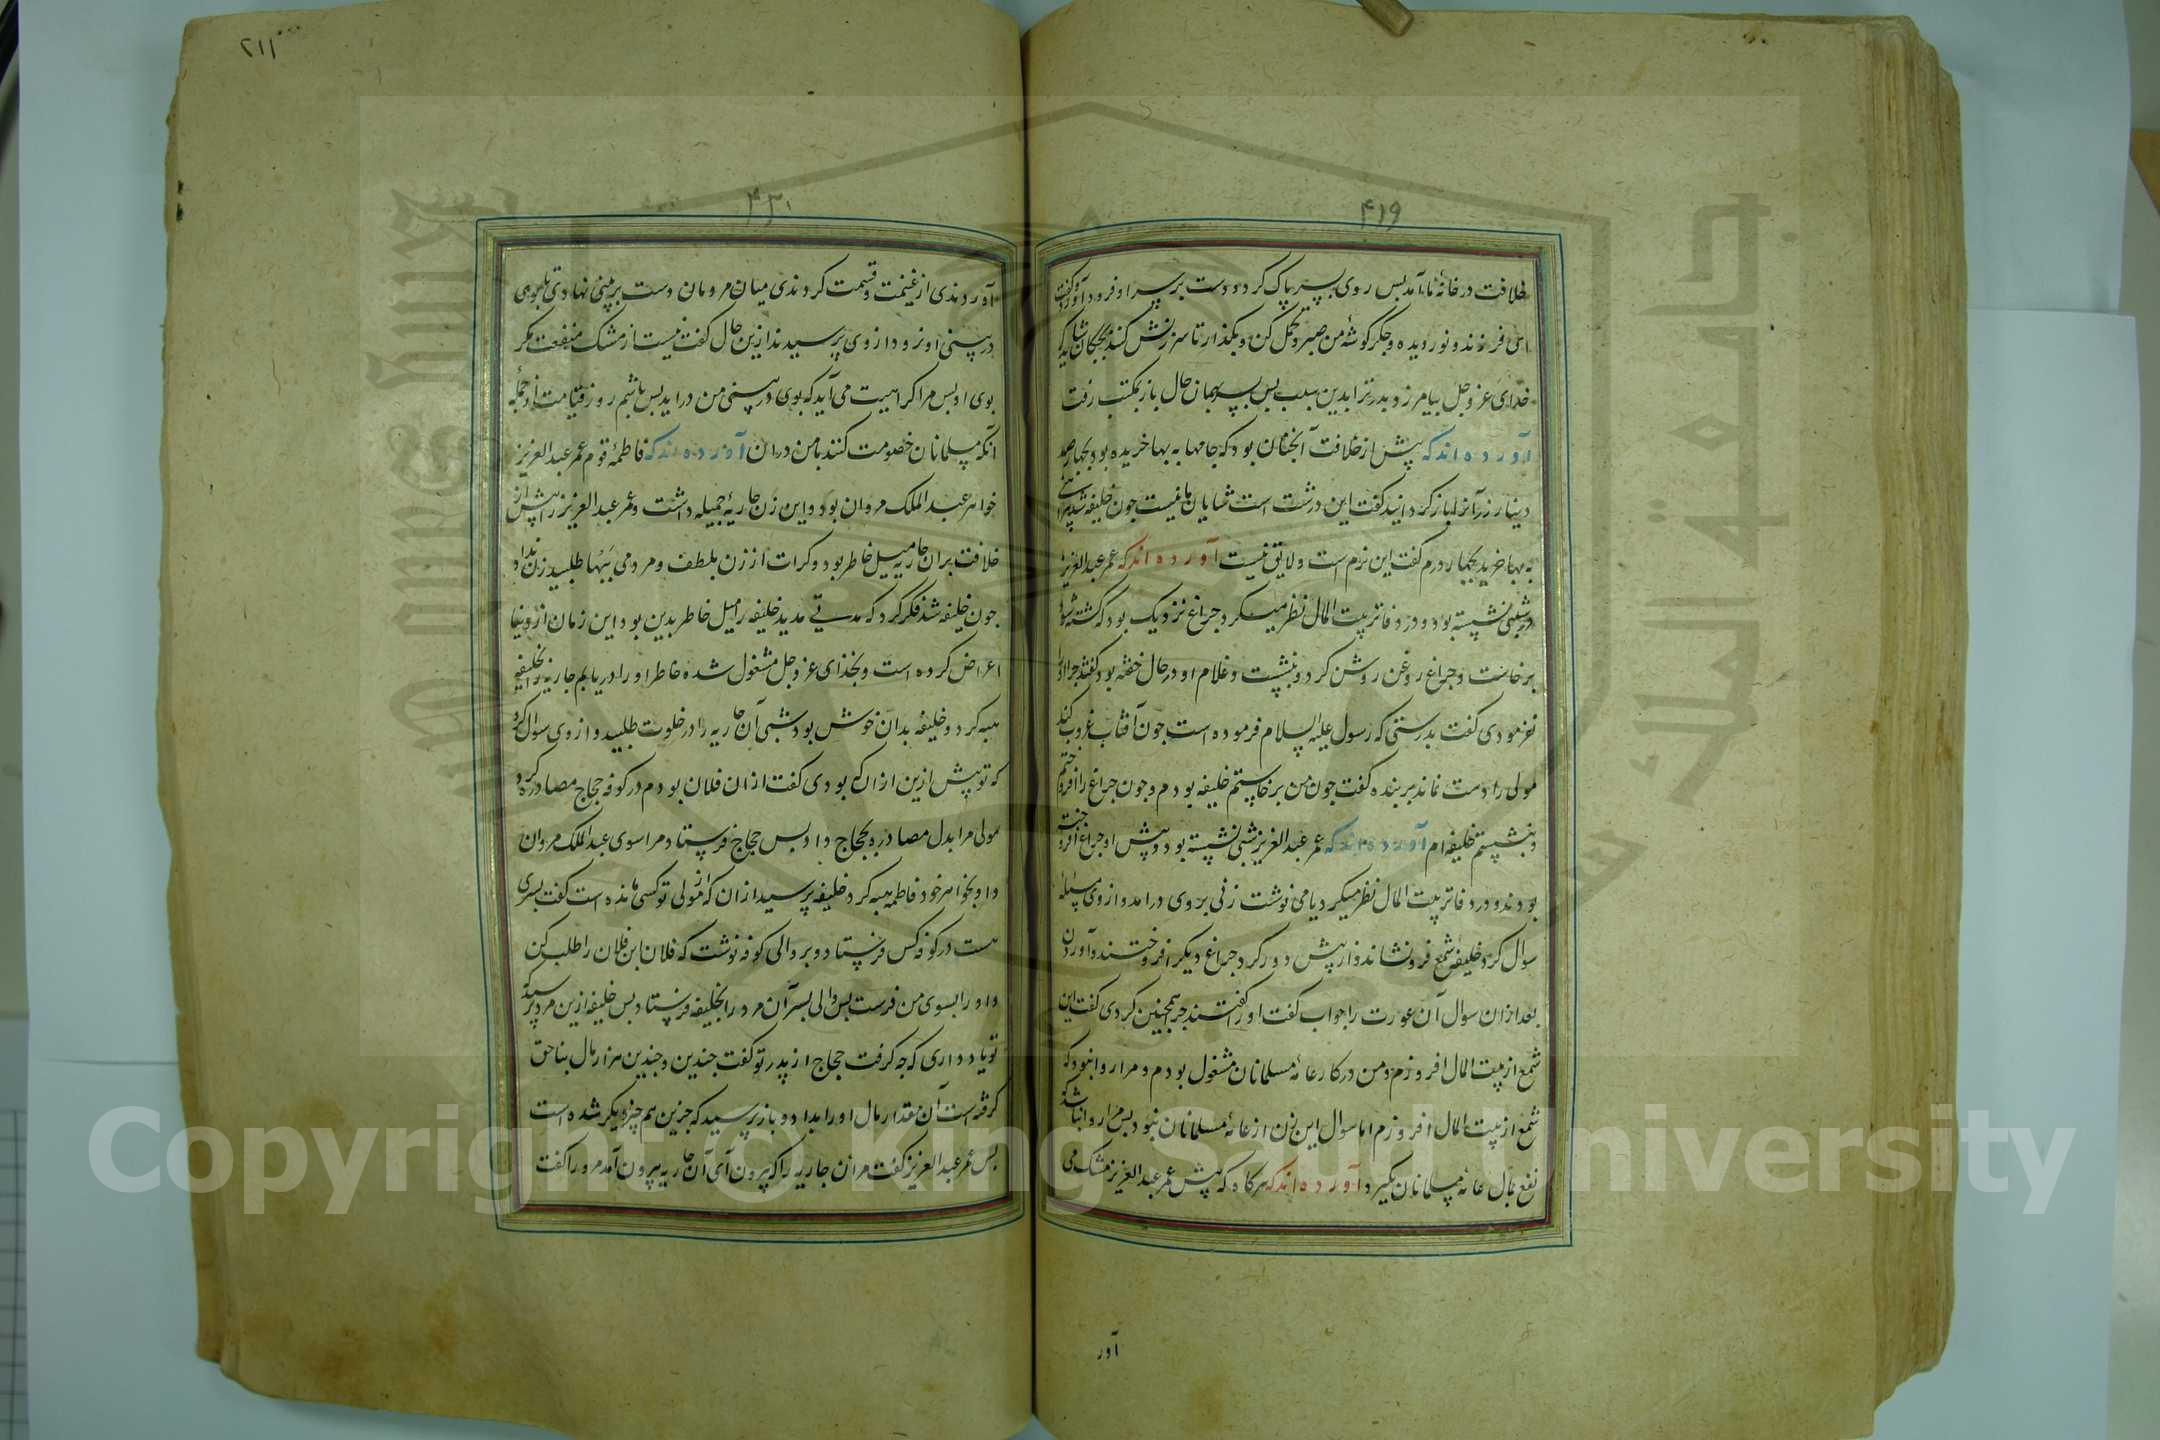 ۴۱۹
خلافت در خانهٔ ما آمد بس روی بسر پاک کرد و دست بر سر او فرود آورد و گفت
ای فرزند و نور دیده و جکر کوشهٔ من صبر و تحمل کن و بکذار تا سرزنش کنند بجکان شاید که
خدای عز و جل بیامرزد بدر ترا بدین سبب بس بسر بهمان حال باز بمکتب رفت
آورده اند که پیش از خلافت آنجنان بود که جامها به بها خریده بود بجهار صد
دینار زر آنرا باز کردانید کفت این درشت است شایان ما نیست جون خلیفه شد
به بها خرید بجهار درم کفت این نرم است و لایق نیست آورده اند که عمر عبد العزیز
در شبی نشسته بود و در دفاتر بیت المال نظر میکرد جراغ نزدیک بود که کشته شود
برخاست و جراغ روغن روشن کرد و بنشست و غلام او در حال خفته بود کفتند جرا او را
نفرمودی کفت بدرستی که رسول علیه السلام فرموده است جون آفتاب غروب کند
مولی را دست نماند بر بنده کفت جون من برخاستم خلیفه بودم و جون جراغ را افروختم
و بنشستم خلیفه ام آورده اند که عمر عبد العزیز شبی نشسته بود و پیش او جراغ افروخته
بودند و در دفاتر بیت المال نظر میکرد یا می نوشت زنی بر وی در امد و از وی مسئله
سوال کرد خلیفه شمع فرو نشاند و از پیش دور کرد جراغ دیکر افروختند و آوردن
بعد ازان سوال آن عورت را جواب کفت او را کفتند جرا همجنین کردی کفت این
شمع از بیت المال افروزم و من در کار عامهٔ مسلمانان مشغول بودم و مرا روا نبود که
شمع از بیت المال افروزم اما سوال این زن از عامهٔ مسلمانان نبود بس مرا روا نباشد که
نفع بمال عامهٔ مسلمانان بکیرد آورده اند که هرکاه که پیش عمر عبد العزیز مشک می
آور
۲۱۱
۴۳۰
آوردندی از غنیمت و قسمت کردندی میان مردمان دست بر بینی نهادی تا بوی
در بینی او نرود از وی پرسیدند ازین حال کفت نیست از مشک منفعت مکر
بوی او بس مرا کراهیت می آید که بوی در بینی من در اید بس باشم روز قیامت از جمله
آنکه مسلمانان خصومت کنند با من دران آورده اند که فاطمه قوم عمر عبد العزیز
خواهر عبد الملک مروان بود و این زن جاریهٔ جمیله داشت و عمر عبد العزیز را پیش از
خلافت بران جاریه میل خاطر بود و کرات از زن بلطف و مردمی ببها طلبید زن نداد
جون خلیفه شد فکر کرد که مدتی مدید خلیفه را میل خاطر بدین بود این زمان از دنیا
اعراض کرده است و بخدای عز و جل مشغول شده خاطر او را دریابم جاریه بخلیفه
هبه کرد و خلیفه بدان خوش بود شبی آن جاریه را در خلوت طلبید و از وی سوال کرد
که تو پیش ازین ازان که بودی کفت ازان فلان بودم در کوفه حجاج مصادره کرد
مولی مرا بدل مصادره بحجاج داد بس حجاج فرستاد مرا سوی عبد الملک مروان
و او بخواهر خود فاطمه هبه کرد خلیفه پرسید ازان که از مولی تو کسی مانده است کفت بسری
هست در کوفه کس فرستاد و بر والی کوفه نوشت که فلان ابن فلان را طلب کن
و او را بسوی من فرست بس والی بسر آن مرد را بخلیفه فرستاد بس خلیفه ازین مرد پرسید که
تو یاد داری که جه کرفت حجاج از پدر تو کفت جندین و جندین هزار مال بناحق
کرفته است آن مقدار مال او را بداد و باز پرسید که جزین هم جیز دیکر شده است
بس عمر عبد العزیز کفت مر آن جاریه را که بیرون آی آن جاریه بیرون آمد مرد را کفت
جامعة الملك سعود
Copyright © King Saud University